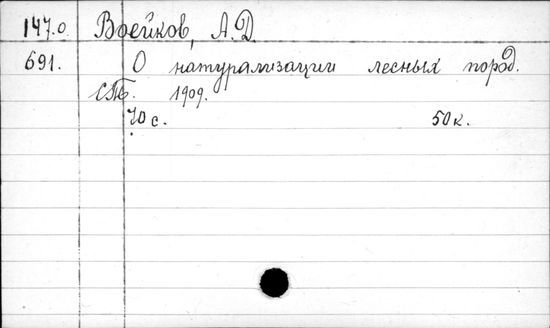 147.о. Воейков, А.Д.
691. О натурализации лесных пород.
СПб. 1909.
70 с. 50 к.